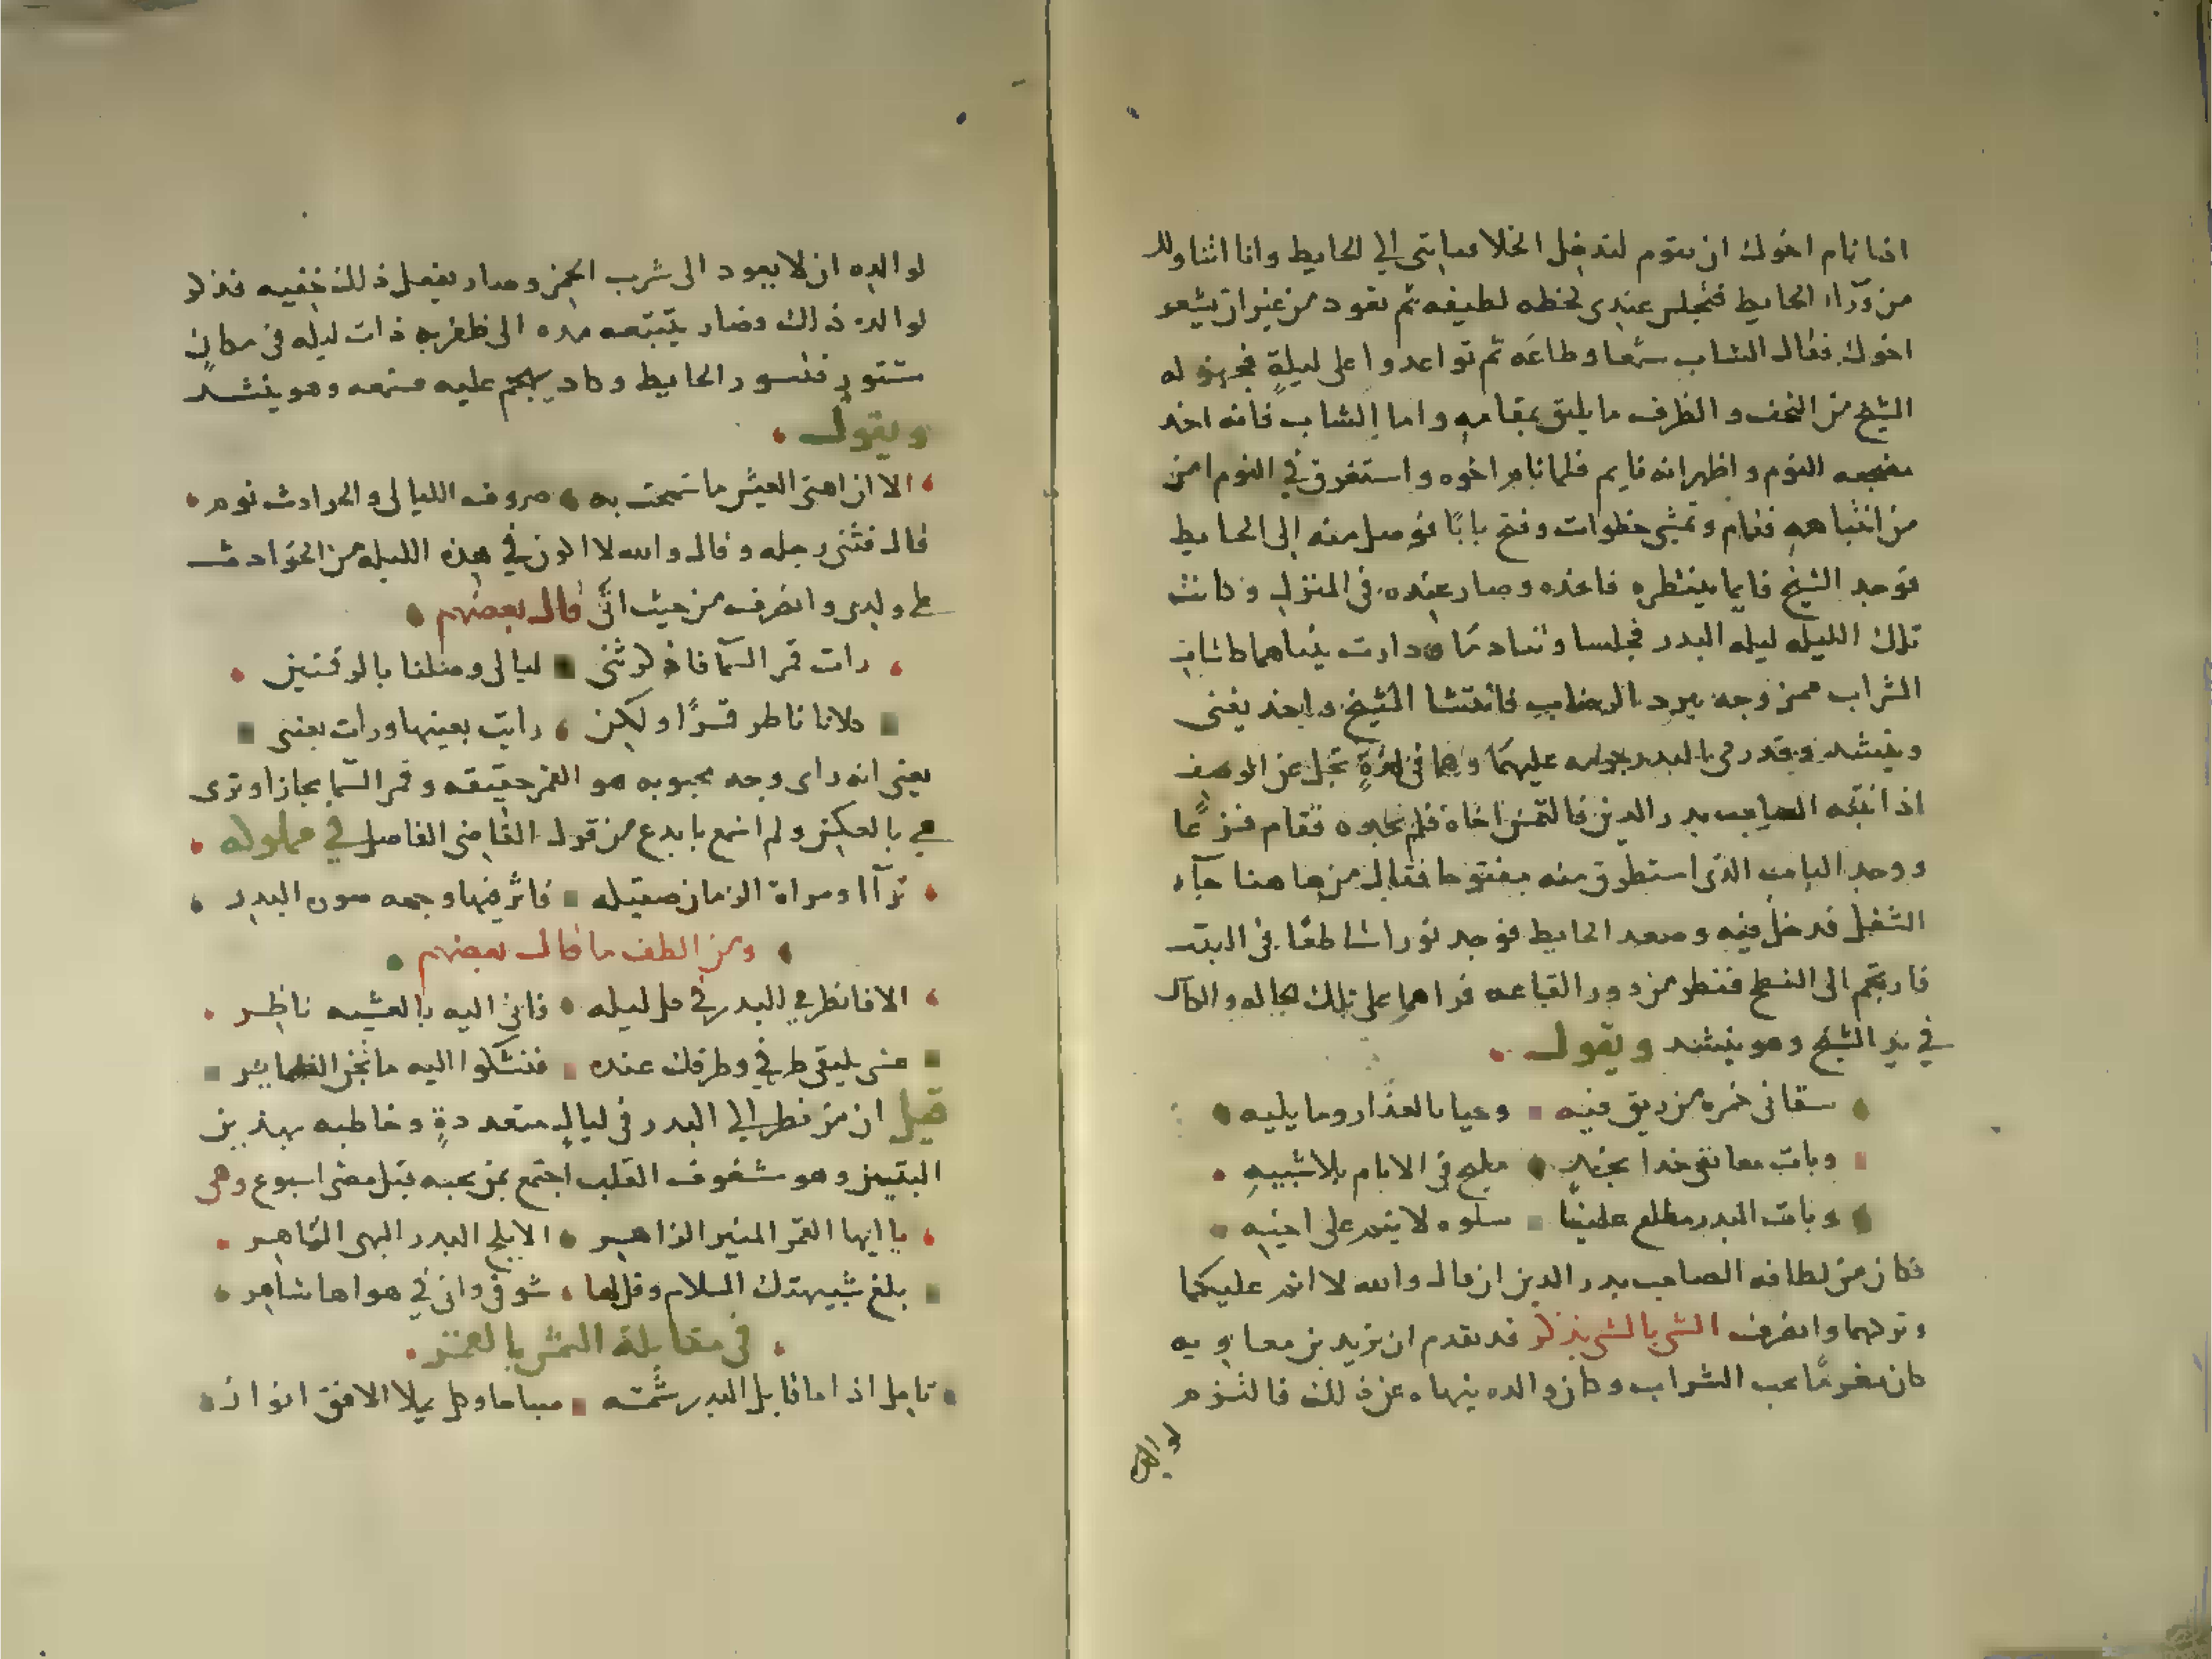 اذا نام اخوك ان تقوم لتدخل الخلا فتاتي الي الحايط وانا اتناولك
من ورآء الحايط فتجلس عندي لحظه لطيفه ثم تعود من غير ان يشعر
اخوك فقال الشاب سمعا وطاعه ثم تواعدوا على ليلةٍ فجهز له
الشيخ من التحف والظرف ما يليق بمقامه واما الشاب فانه اخذ
مضجعه النوم واظهر انه نايم فلما نام اخوه واستغرق في النوم امن
من انتباهه فقام وتمشى خطوات وفتح بابًا توصل منه الى الحايط
فوجد الشيخ قايما ينتظره فاخذه وصار عنده في المنزل وكانت
تلك الليله ليله البدر فجلسا وتنادما ودارت بينهما كاسات
الشراب ممزوجه ببرد الرضاب فانتشا الشيخ واخذ يغنى
وينشد وقد رمى البدر بجرمه عليهما وهما في لذةٍ تجل عن الوصف
اذ انتبه الصاحب بدر الدين فالتمس اخاه فلم يجده فقام فزعًا
ووجد الباب الذي استطرق منه مفتوحا فقال من هاهنا جآء
الشغل فدخل فيه وصعد الحايط فوجد نورا ساطعًا في البيت
فارتجم الى السطح فنظر من دور القاعه فراهما على تلك الحاله والكاس
في يد الشيخ وهو ينشد ويقول
سقاني خمره من ريق فيه وحيا بالعذار وما يليه
وبات معانقي خدا بخدٍ مليح في الانام بلا شبيه
وبات البدر مطلع علينا سلوه لا ينم على اخيه
فكان من لطافه الصاحب بدر الدين ان قال والله لا انم عليكما
وتركهما وانصرف الشي بالشي يذكر قد تقدم ان يزيد بن معاويه
كان مغرمًا بحب الشراب وكان والده ينهاه عن ذلك فالتزم
لوالده
لوالده ان لا يعود الى شرب الخمر وصار يفعل ذلك خفيه فذكر
لوالده ذلك وصار يتتبعه مده الى ظفر به ذات ليله في مكانٍ
مستتور فتسور الحايط وكاد يهجم عليه فسمعه وهو ينشد
ويقول
الا ان اهنى العيش ما سمحت به صروف الليالي والحوادث نوم
قال فثنى رجله وقال والله لا اكون في هذه الليله من الحوادث
على ولدي وانصرف من حيث اتى قال بعضهم
رات قمر السما فاذكرتني ليالي وصلنا بالرقمتين
كلانا ناظر قمرًا ولكن رايت بعينها ورات بعيني
يعني انه راى وجه محبوبه هو القمر حقيقه وقمر السما مجازا وترى
هي بالعكس ولم اسمع بابدع من قول القاضي الفاضل في مملوكه
ترآا ومراة الزمان صقيله فاثر فيها وجهه صورة البدر
ومن الطف ما قال بعضهم
الا فانظري للبدر في كل ليله فاني اليه بالعشيه ناظر
عسى يلتقي طرفي وطرفك عنده فنشكوا اليه ما تجن الضماير
قيل ان من نظر الي البدر في ليالٍ متعددةٍ وخاطبه بهذين
البيتين وهو مشغوف القلب اجتمع بمن يحبه قبل مضى اسبوع وهى
يا ايها القمر المنير الزاهر الابلج البدر البهي الباهر
بلغ شبيهتك السلام وقل لها شوقي واني في هواها ساهر
في مقابلة الشمس بالقمر
تامل اذا ما قابل البدر شمسه صباحا وكل يملا الافق انواره